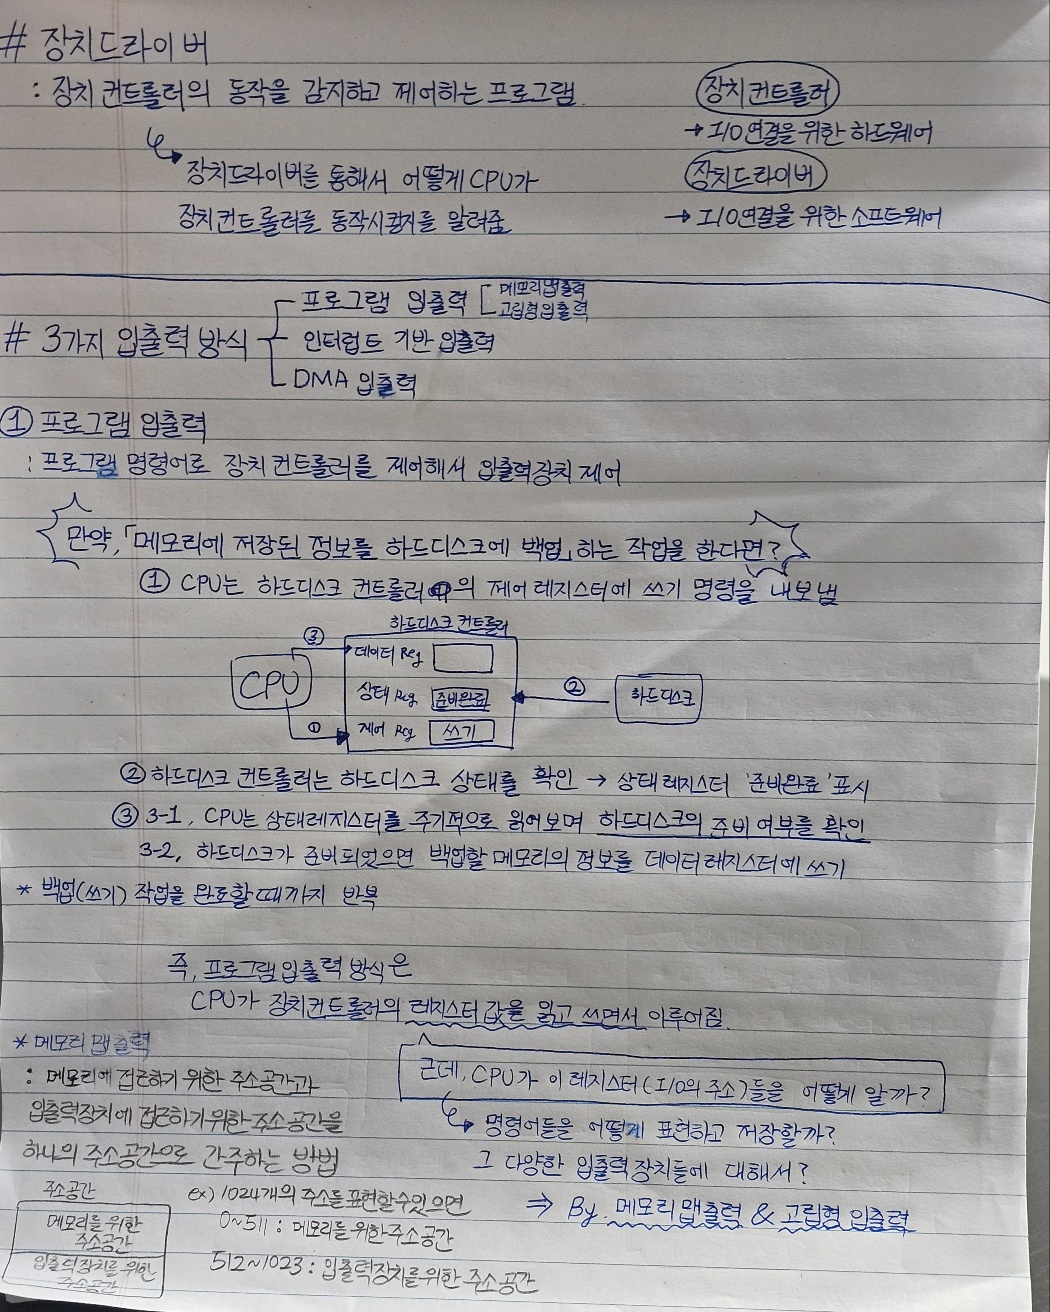 # 장치드라이버
: 장치 컨트롤러의 동작을 감지하고 제어하는 프로그램
장치드라이버를 통해서 어떻게 CPU가
장치컨트롤러를 동작시킬지를 알려줌
장치컨트롤러
→ I/O연결을 위한 하드웨어
장치드라이버
→ I/O연결을 위한 소프트웨어
# 3가지 입출력 방식
프로그램 입출력
메모리맵출력
고립형입출력
인터럽트 기반 입출력
DMA 입출력
① 프로그램 입출력
: 프로그램 명령어로 장치컨트롤러를 제어해서 입출력장치 제어
만약,「메모리에 저장된 정보를 하드디스크에 백업」하는 작업을 한다면?
① CPU는 하드디스크 컨트롤러의 제어레지스터에 쓰기 명령을 내보냄
하드디스크 컨트롤러
③
데이터 Reg
CPU
상태 Reg 준비완료
②
하드디스크
①
제어 Reg 쓰기
② 하드디스크 컨트롤러는 하드디스크 상태를 확인 → 상태레지스터 '준비완료' 표시
③ 3-1, CPU는 상태레지스터를 주기적으로 읽어보며 하드디스크의 준비 여부를 확인
3-2, 하드디스크가 준비되었으면 백업할 메모리의 정보를 데이터레지스터에 쓰기
* 백업(쓰기) 작업을 완료할때까지 반복
즉, 프로그램입출력 방식은
CPU가 장치컨트롤러의 레지스터 값을 읽고 쓰면서 이루어짐
* 메모리 맵출력
: 메모리에 접근하기 위한 주소공간과
입출력장치에 접근하기 위한 주소 공간을
하나의 주소공간으로 간주하는 방법
근데, CPU가 이 레지스터(I/O의 주소)들을 어떻게 알까?
명령어들을 어떻게 표현하고 저장할까?
그 다양한 입출력장치들에 대해서?
⇒ By. 메모리맵출력 & 고립형 입출력
주소공간
메모리를 위한
주소공간
입출력장치를 위한
주소공간
ex) 1024개의 주소를 표현할수있으면
0~511 : 메모리를 위한 주소공간
512~1023 : 입출력장치를 위한 주소 공간